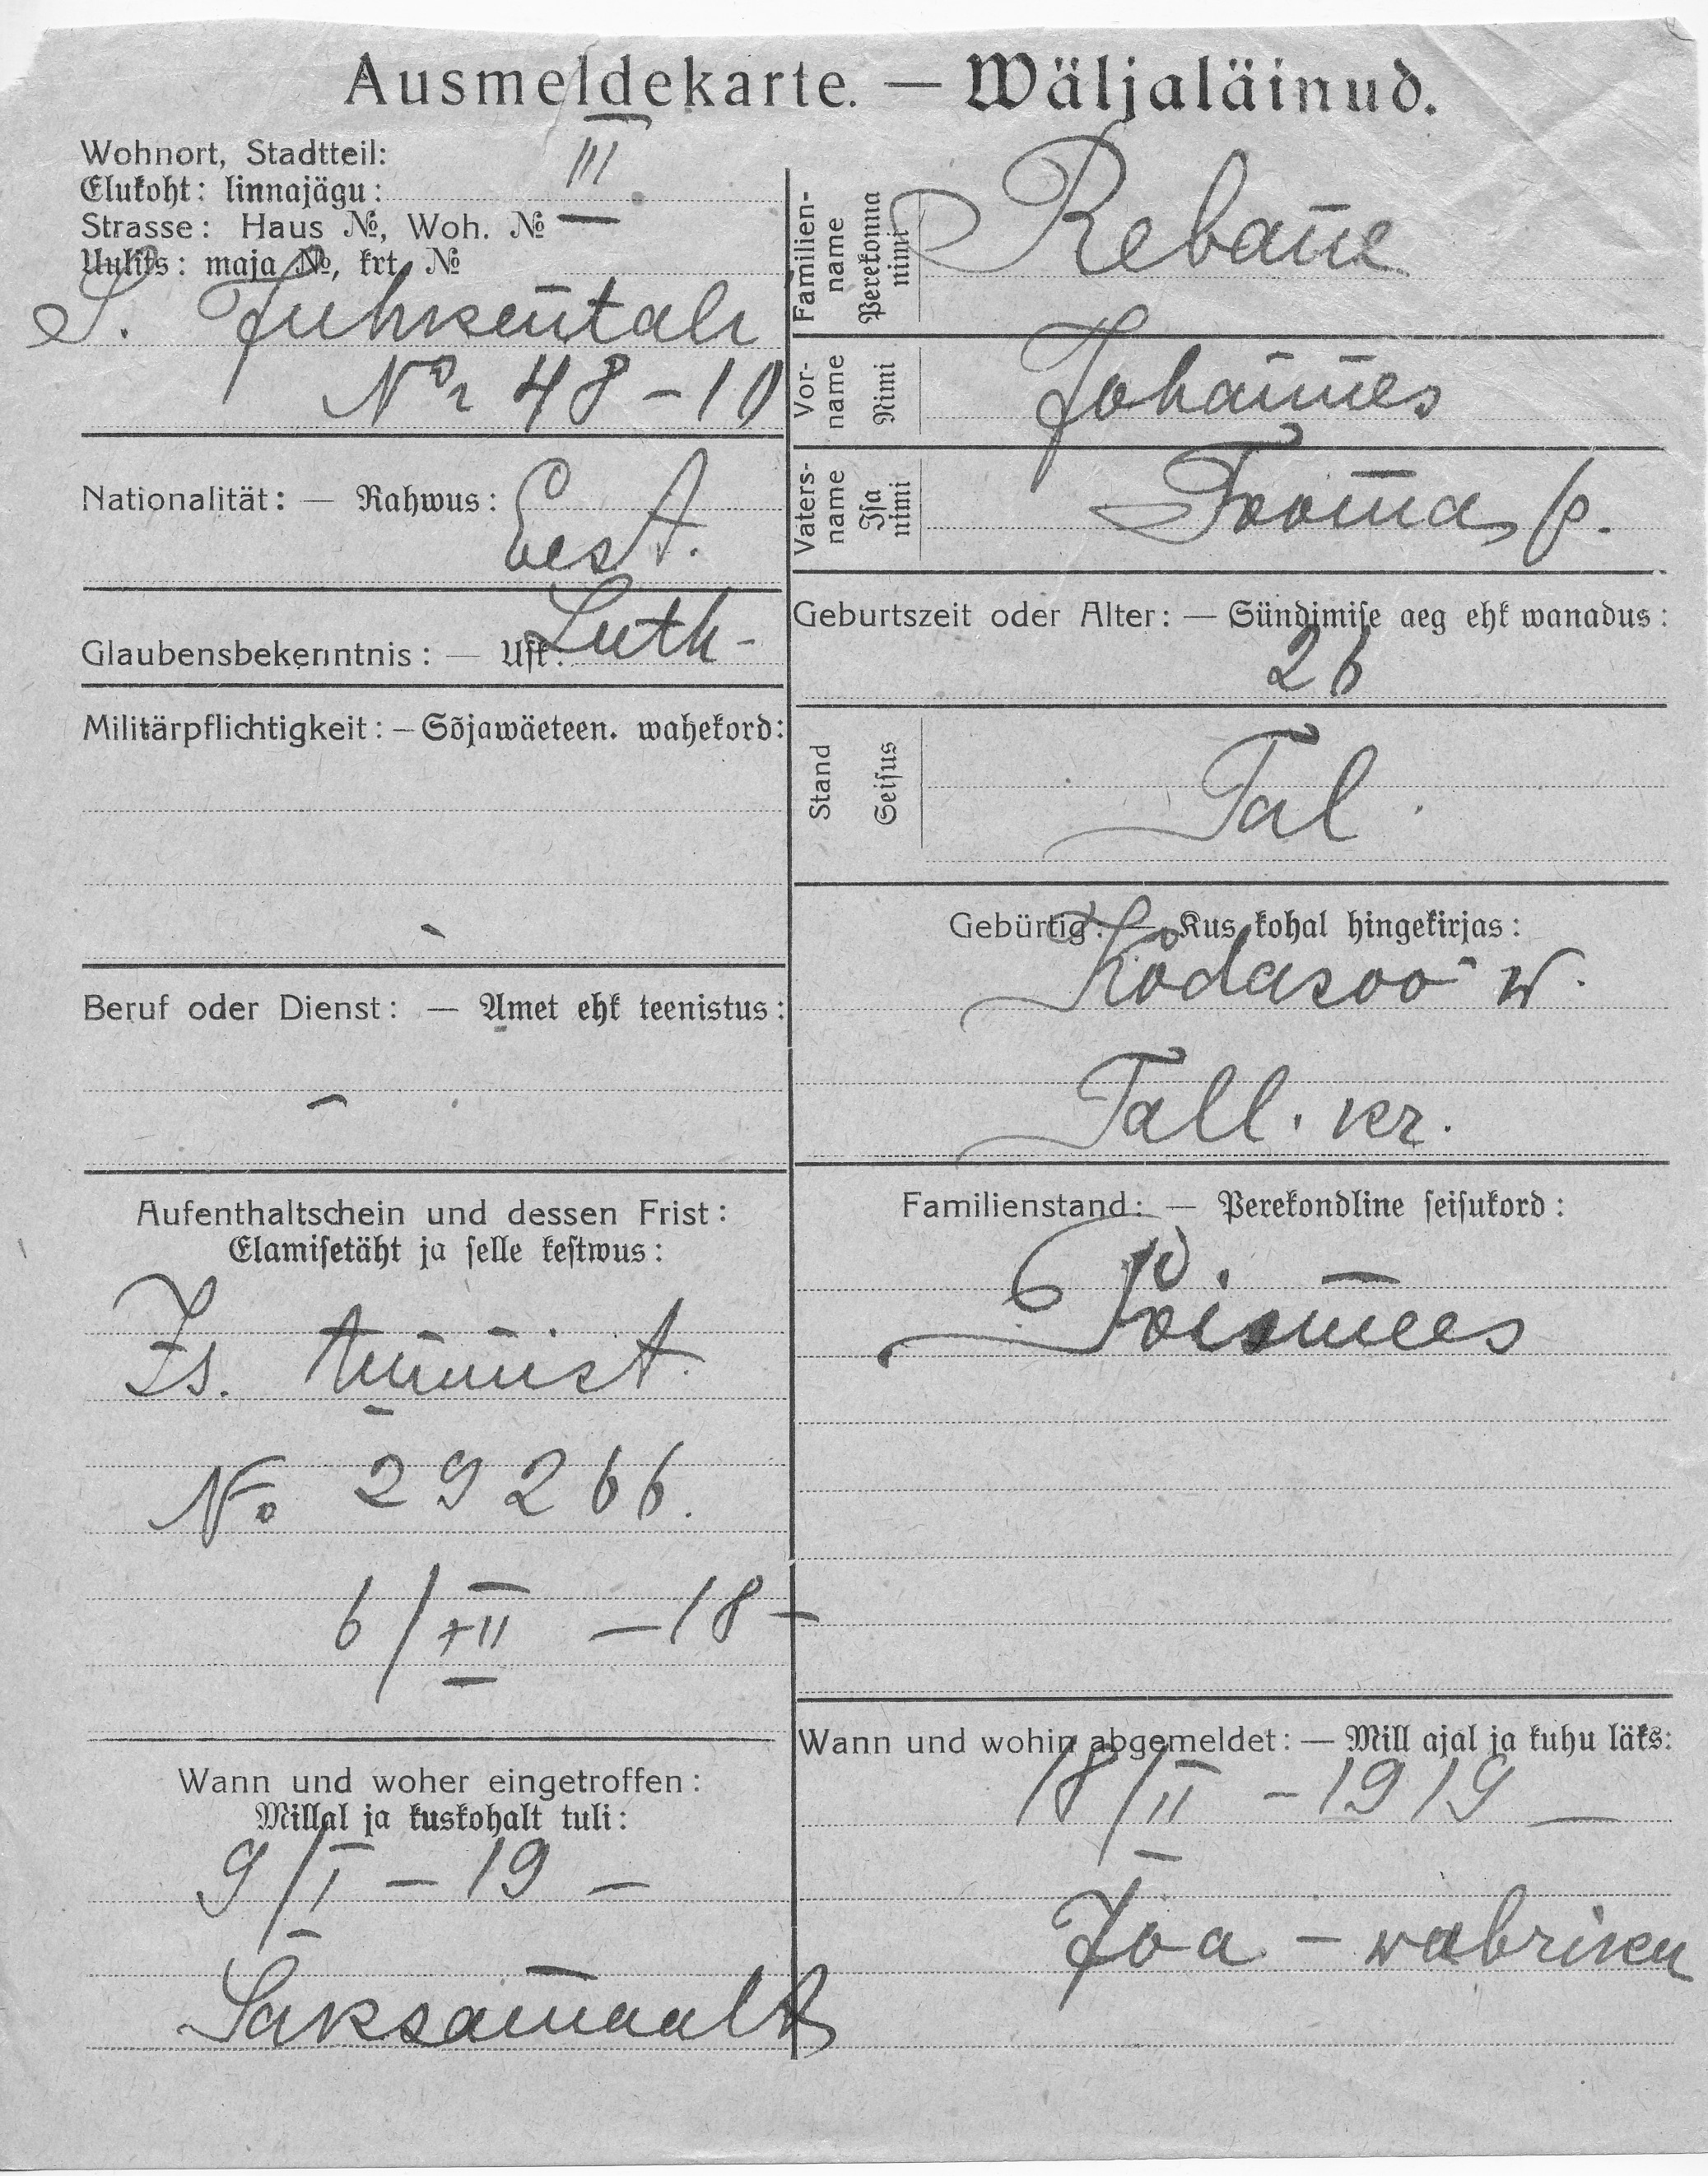 Ausmeldekarte. — Wäljaläinud.
Wohnort, Stadtteil:
Elukoht: linnajägu: III
Strasse: Haus №, Woh. №
Uulits: maja №, krt. №
S. Juhkentali
No 48 - 10
Nationalität: — Rahwus: Eest.
Glaubensbekenntnis: — Usk: Luth-
Militärpflichtigkeit: — Sõjawäeteen. wahekord:
-
Beruf oder Dienst: — Amet ehk teenistus:
-
Aufenthaltschein und dessen Frist:
Elamisetäht ja selle kestwus:
Is. tunnist.
No 29266.
6/XII - 18 -
Wann und woher eingetroffen:
Millal ja kuskohalt tuli:
9/I - 19 -
Saksamaalt
Familien-
name
Perekonna
nimi
Rebane
Vor-
name
Nimi
Johannes
Vaters-
name
Isa
nimi
Tooma p.
Geburtszeit oder Alter: — Sündimise aeg ehk wanadus:
26
Stand
Seisus
Tal.
Gebürtig: — Kus kohal hingekirjas:
Kodasoo w.
Tall. kr.
Familienstand: — Perekondline seisukord:
Poismees
Wann und wohin abgemeldet: — Mill ajal ja kuhu läks:
18/II - 1919 —
Joa - wabriku